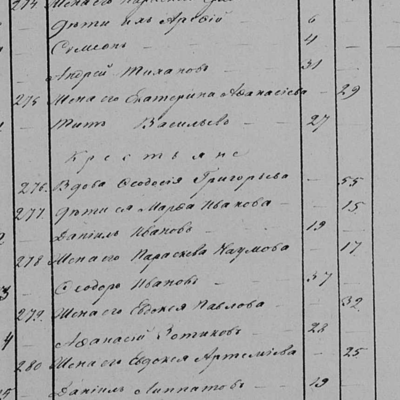 274 Жена его Параскева
Дѣти ихъ Арсѳній 6
Симеонъ 4
Андрей Тихановъ 31
275 Жена его Екатерина Аѳанасіева 29
Титъ Васильевъ 27
Крестьяне
276 Вдова Ѳеодосія Григорьева 55
277 Дѣти ея Марѳа Иванова 15
Даніилъ Ивановъ 19
278 Жена его Параскева Наумова 17
3 Ѳеодоръ Ивановъ 37
279 Жена его Евдокея Павлова 32
4 Аѳанасій Зотиковъ 28
280 Жена его Евдокея Артеміева 25
Даніилъ Липпатовъ 19